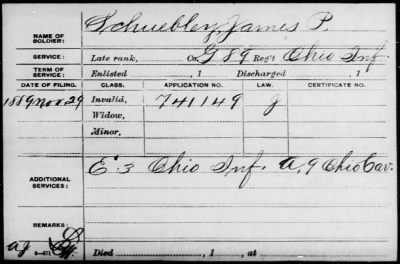 NAME OF SOLDIER: Schuebley, James P.
SERVICE: Late rank, Co. G 89 Reg't Ohio Inf.
TERM OF SERVICE: Enlisted , 1 Discharged , 1
DATE OF FILING. CLASS. APPLICATION NO. LAW. CERTIFICATE NO.
1889 Nov. 29 Invalid, 741149
Widow,
Minor,
ADDITIONAL SERVICES: E 3 Ohio Inf. A, 9 Ohio Cav.
REMARKS:
3—671
Died , 1 , at